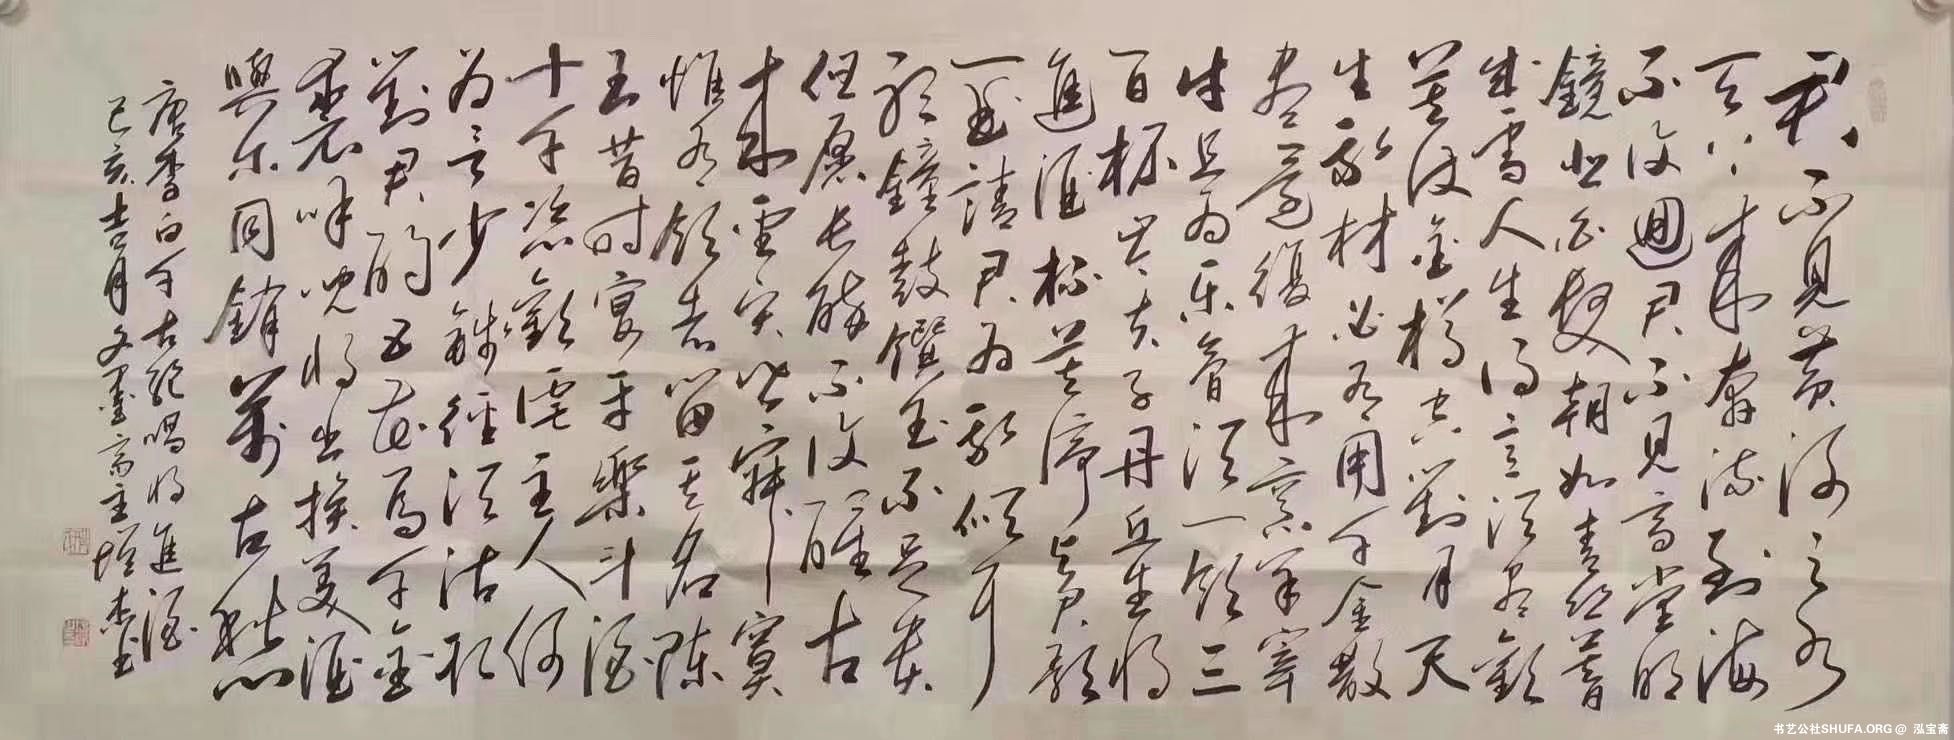 君不见黄河之水
天上来奔流到海
不复迴君不见高堂明
镜悲白发朝如青丝暮
成雪人生得意须尽歡
莫使金樽空對月天
生我材必有用千金散
尽还復来烹羊宰
牛且为乐會须一饮三
百杯岑夫子丹丘生将
進酒杯莫停與君歌
一曲請君为我倾耳
听鐘鼓饌玉不足贵
但愿长醉不复醒古
来聖贤皆寂寞
惟有饮者留其名陈
王昔时宴平樂斗酒
十千恣歡谑主人何
为言少錢径须沽取
對君酌五花马千金
裘呼儿将出换美酒
與尔同销萬古愁
唐李白千古绝唱将進酒
己亥吉月文墨斋主 杰书
书艺公社SHUFA.ORG @ 泓宝斋